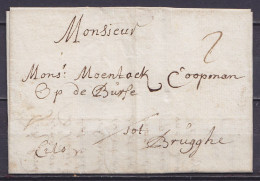 Monsieur
2
Mons: Moentack Coopman
Op de Burse
Cito sot
Brugghe